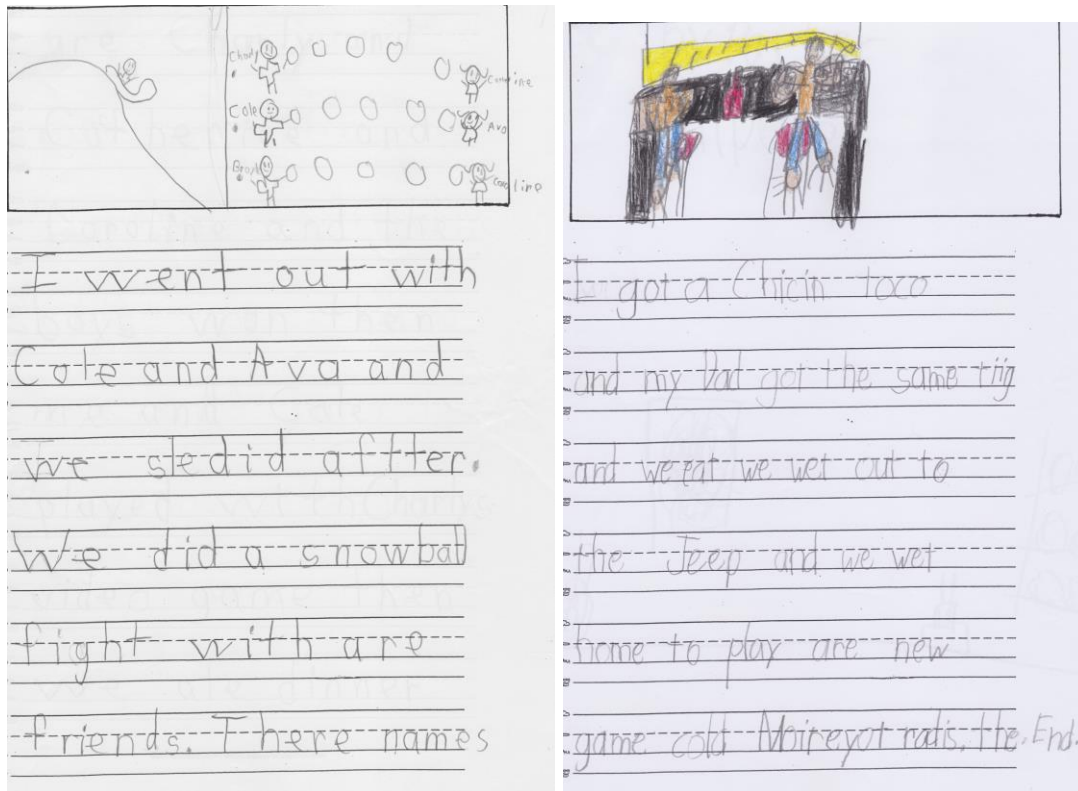 Charly
Cole
Brost
ine
Ava
line
I went out with
Cole and Ava and
we sledid affter.
We did a snowball
fight with are
friends. There names
I got a Chicin toco
and my Dad got the same tiig
and we eat we wet out to
the Jeep and we wet
home to play are new
game cold Moireyot radis. the. End.